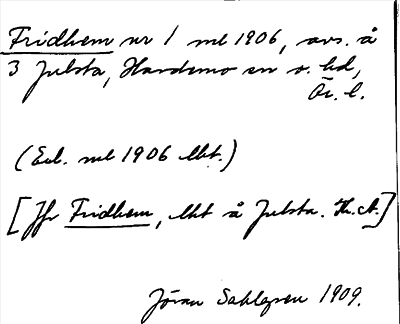 Fridhem nr 1 ml 1906, avs. å
3 Julsta, Hardemo sn o. hd,
Ör. l.
(Enl. ml 1906 lht.)
[Jfr Fridhem, lht å Julsta. Th. A.]
Jöran Sahlgren 1909.